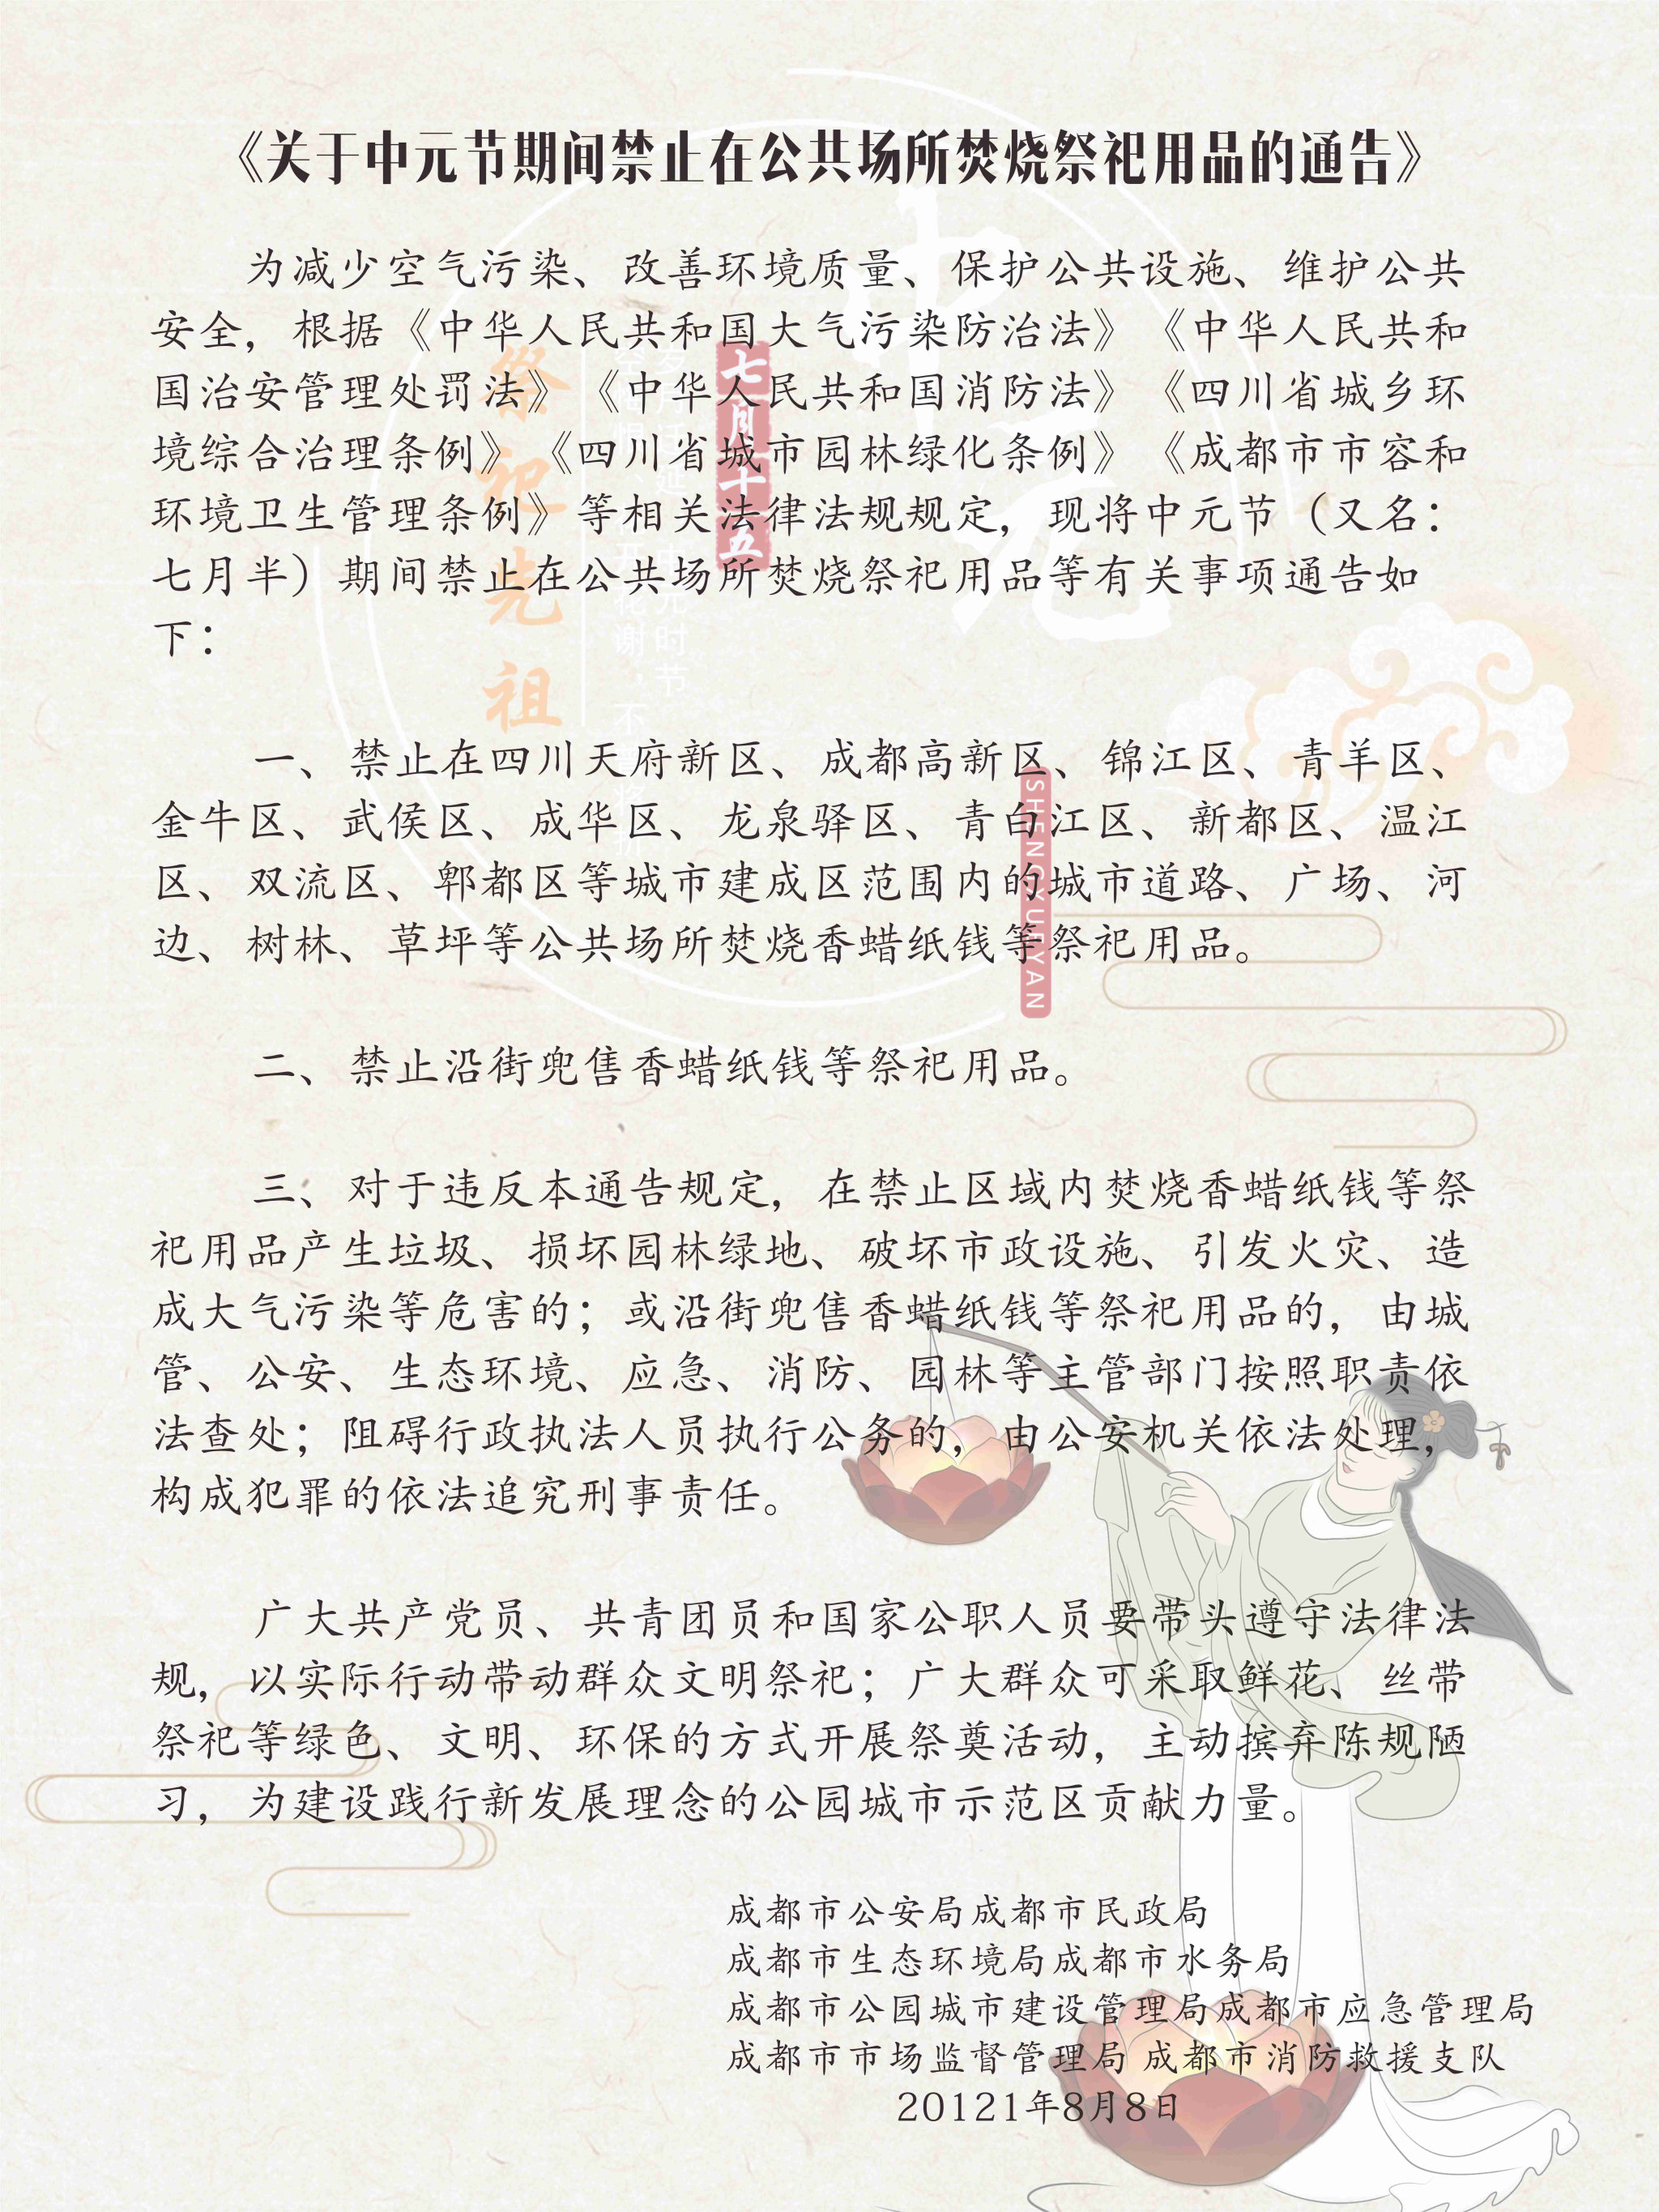 《关于中元节期间禁止在公共场所焚烧祭祀用品的通告》
为减少空气污染、改善环境质量、保护公共设施、维护公共
安全，根据《中华人民共和国大气污染防治法》《中华人民共和
国治安管理处罚法》《中华人民共和国消防法》《四川省城乡环
境综合治理条例》《四川省城市园林绿化条例》《成都市市容和
环境卫生管理条例》等相关法律法规规定，现将中元节（又名：
七月半）期间禁止在公共场所焚烧祭祀用品等有关事项通告如
下：
一、禁止在四川天府新区、成都高新区、锦江区、青羊区、
金牛区、武侯区、成华区、龙泉驿区、青白江区、新都区、温江
区、双流区、郫都区等城市建成区范围内的城市道路、广场、河
边、树林、草坪等公共场所焚烧香蜡纸钱等祭祀用品。
二、禁止沿街兜售香蜡纸钱等祭祀用品。
三、对于违反本通告规定，在禁止区域内焚烧香蜡纸钱等祭
祀用品产生垃圾、损坏园林绿地、破坏市政设施、引发火灾、造
成大气污染等危害的；或沿街兜售香蜡纸钱等祭祀用品的，由城
管、公安、生态环境、应急、消防、园林等主管部门按照职责依
法查处；阻碍行政执法人员执行公务的，由公安机关依法处理，
构成犯罪的依法追究刑事责任。
广大共产党员、共青团员和国家公职人员要带头遵守法律法
规，以实际行动带动群众文明祭祀；广大群众可采取鲜花、丝带
祭祀等绿色、文明、环保的方式开展祭奠活动，主动摈弃陈规陋
习，为建设践行新发展理念的公园城市示范区贡献力量。
成都市公安局成都市民政局
成都市生态环境局成都市水务局
成都市公园城市建设管理局成都市应急管理局
成都市市场监督管理局 成都市消防救援支队
20121年8月8日
中元
七月十五
祭祀先祖